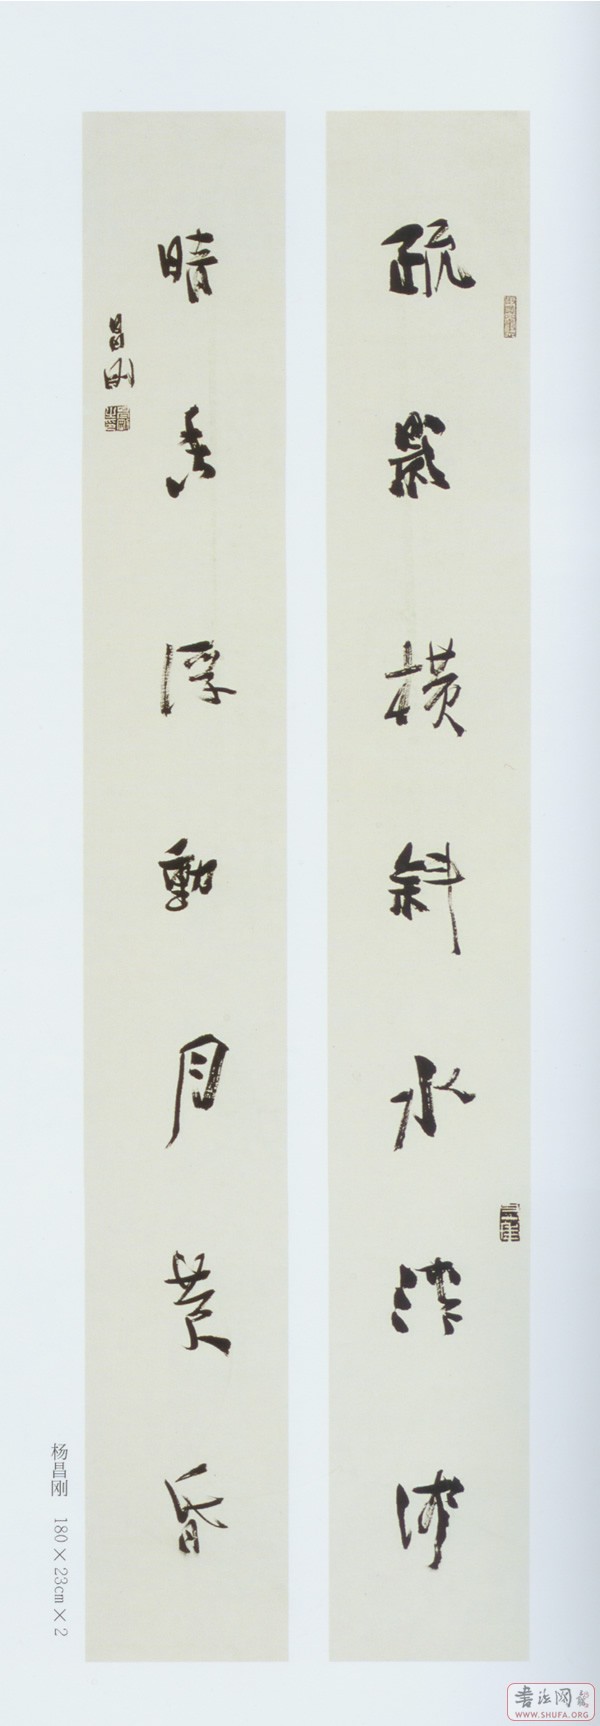 疏影横斜水清浅
暗香浮動月黄昏
昌刚
杨昌刚 180×23cm×2
书法网
WWW.SHUFA.ORG